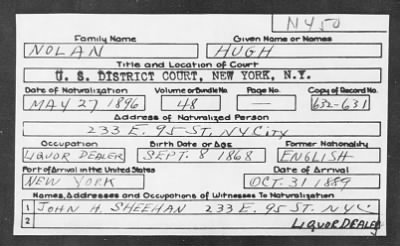 NY50
Family Name Given Name or Names
NOLAN HUGH
Title and Location of Court
U. S. DISTRICT COURT, NEW YORK, N.Y.
Date of Naturalization Volume or Bundle No. Page No. Copy of Record No.
MAY 27 1896 48 — 632-631
Address of Naturalized Person
233 E. 95 ST. NY CITY
Occupation Birth Date or Age Former Nationality
LIQUOR DEALER SEPT. 8 1868 ENGLISH
Port of Arrival in the United States Date of Arrival
NEW YORK OCT. 31 1889
Names, Addresses and Occupations of Witnesses To Naturalization
1 JOHN H. SHEEHAN 233 E. 95 ST. NYC
2 LIQUOR DEALER